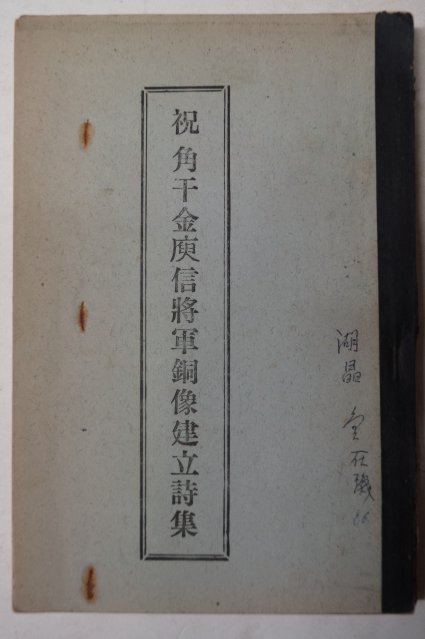 祝 角干金庾信將軍銅像建立詩集
湖晶 金在璣
66